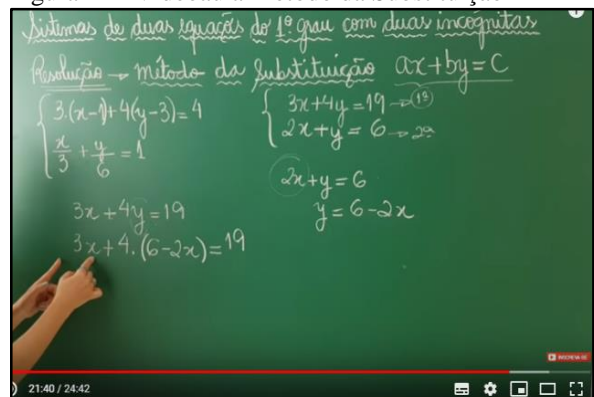 Sistemas de duas equações do 1º grau com duas incógnitas
Resolução → método da substituição ax+by=C
3.(x-1)+4(y-3)=4
x/3 + y/6 = 1
3x+4y=19 → 1ª
2x+y=6 → 2ª
2x+y=6
y=6-2x
3x+4y=19
3x+4.(6-2x)=19
INSCREVA-SE
21:40 / 24:42